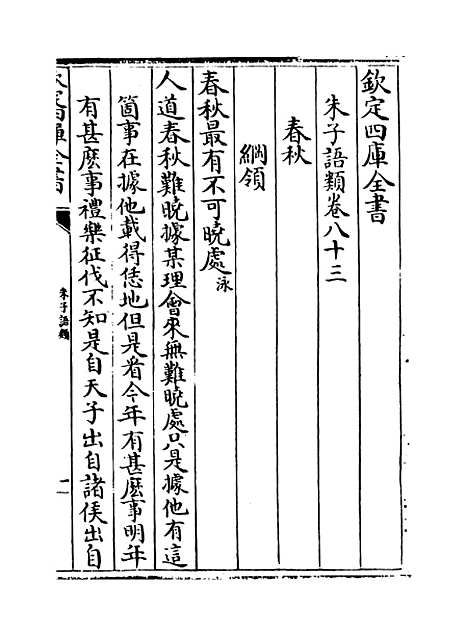 欽定四庫全書
朱子語類卷八十三
春秋
綱領
春秋最有不可曉處泳
人道春秋難曉據某理會來無難曉處只是據他有這
箇事在據他載得恁地但是看今年有甚麽事明年
有甚麽事禮樂征伐不知是自天子出自諸侯出自
欽定四庫全書
朱子語類